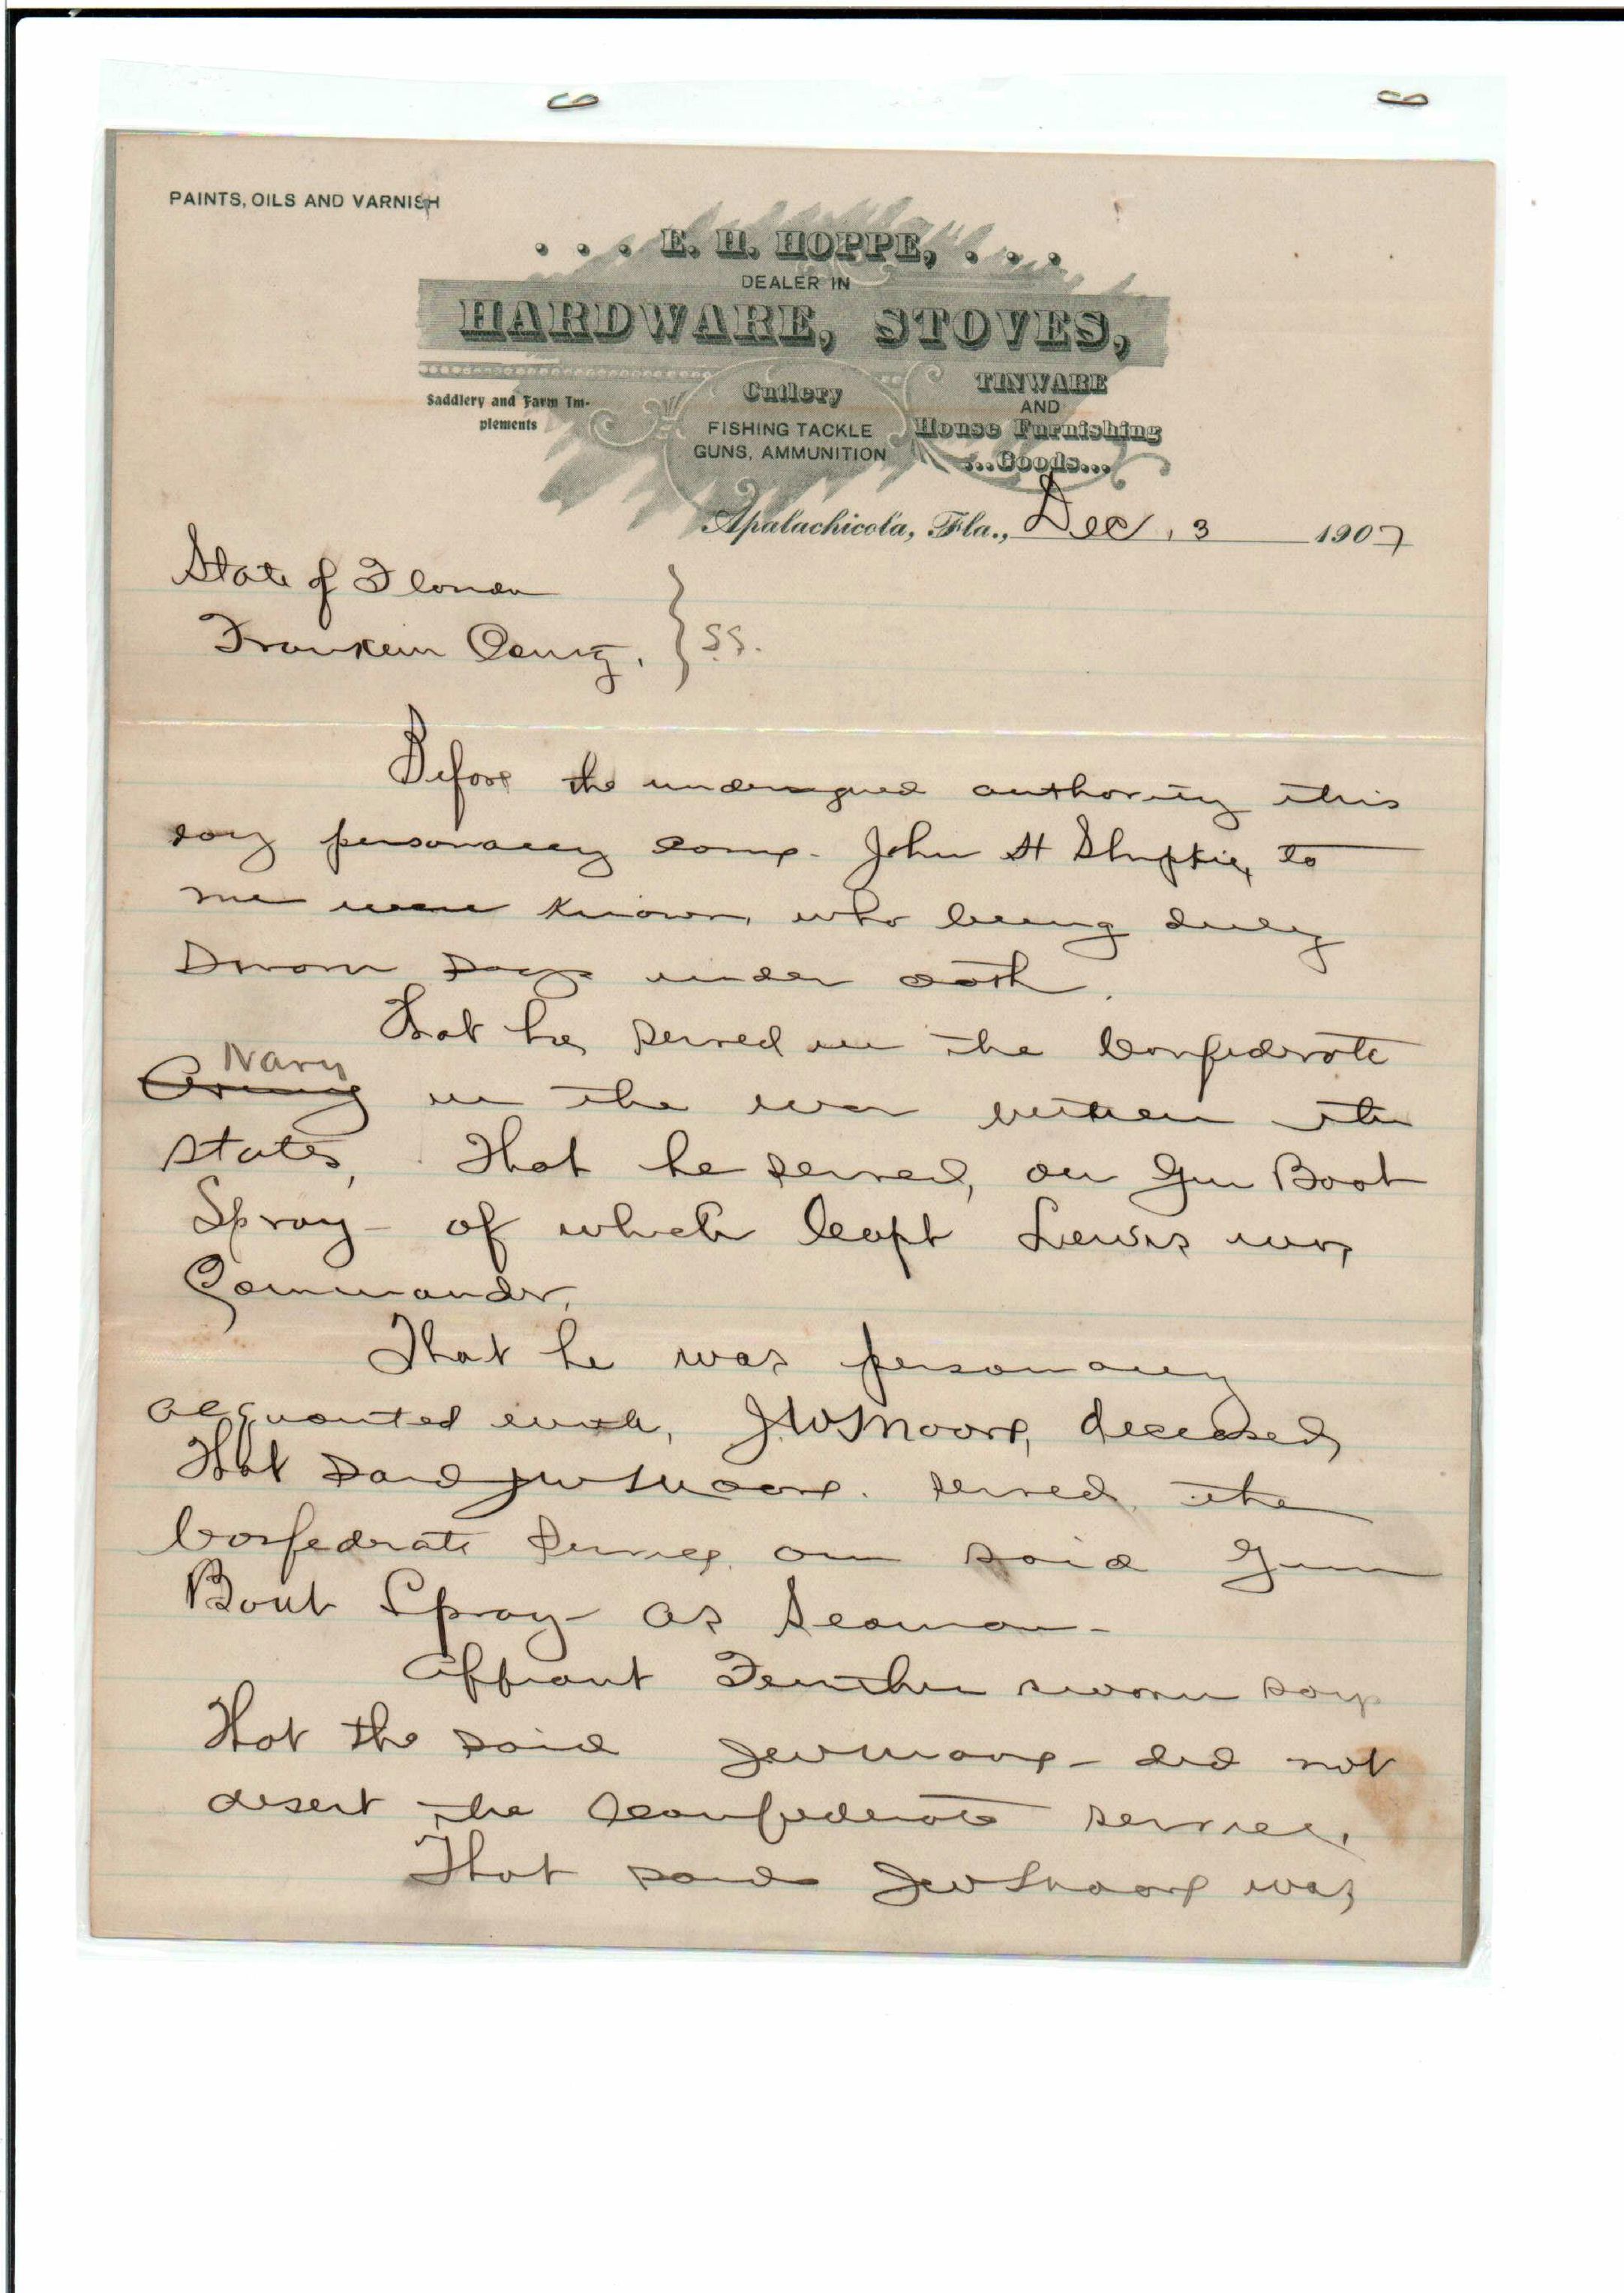 PAINTS, OILS AND VARNISH
... E. H. HOPPE, ...
DEALER IN
HARDWARE, STOVES,
Saddlery and Farm Im-
plements
Cutlery
FISHING TACKLE
GUNS, AMMUNITION
TINWARE
AND
House Furnishing
...Goods...
Apalachicola, Fla., Dec, 3 1907
State of Florida
Franklin County, } SS.
Before the undersigned authority this
day personally came John H to
me well known, who being duly
Sworn says under oath.
That he served in the Confederate
Navy
Army in the war between the
States, That he served, on Gun Boat
Spray - of which Capt Lewis was
Commander.
That he was personally
acquanted with, J W Moore, deceased,
That said J W Moore. served the
Confederate Service on said Gun
Boat Spray - as Seaman -
Affiant Further sworn says
That the said J W Moore - did not
desert the Confederate service.
That said J W Moore was